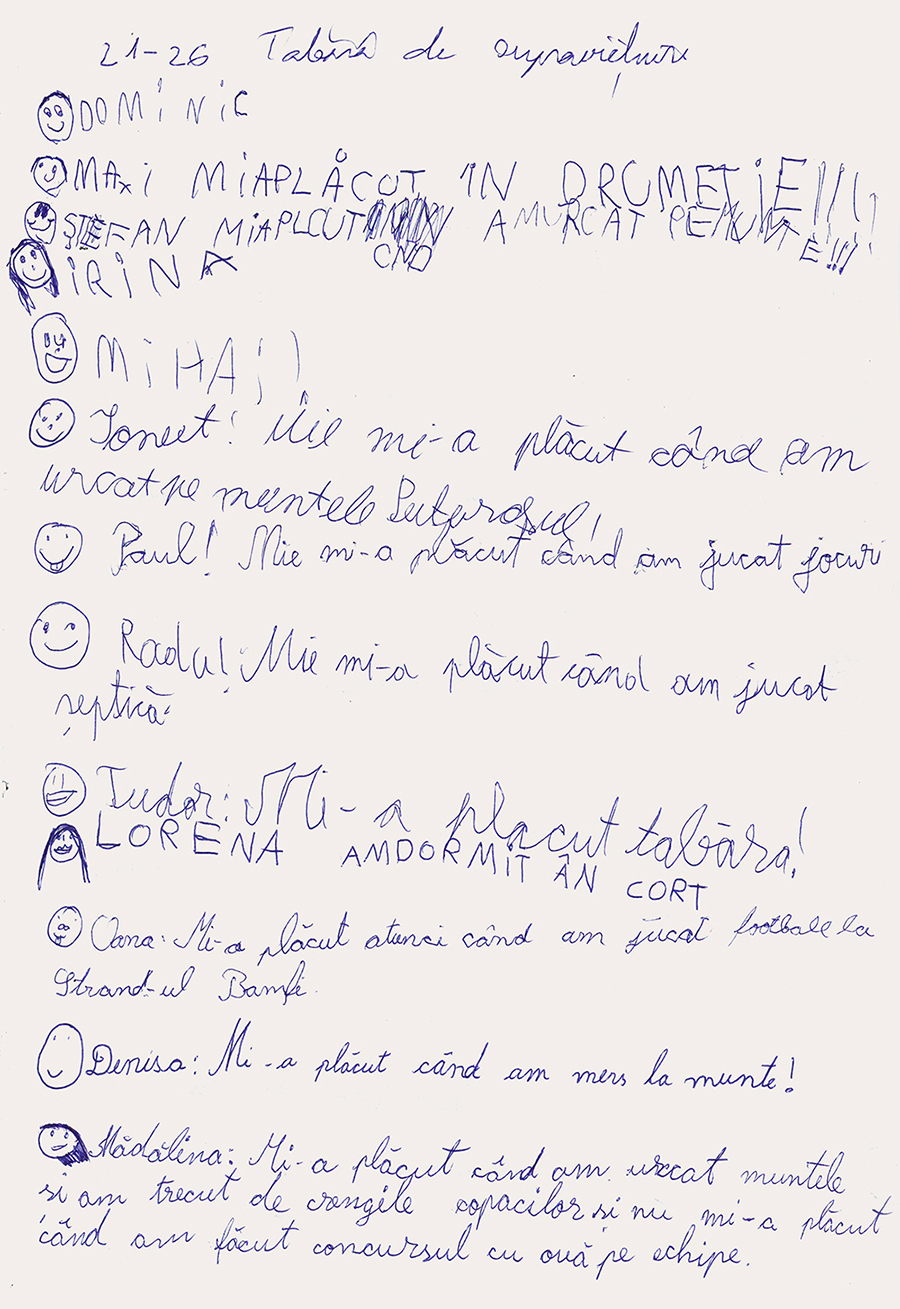 21-26 Tabără de supraviețuire
DOMiNiC
MAXi MiAPLĂCOT IN DRUMEȚiE!!!!
ȘTEFAN MiAPLCUT CND AMURCAT PEMUNTE!!!
iRiNA
MiHAi!
Ionuț! Mie mi-a plăcut când am
urcat pe muntele
Paul! Mie mi-a plăcut când am jucat jocuri
Radu! Mie mi-a plăcut când am jucat
șeptică.
Tudor: Mi-a placut tabăra!
LORENA AMDORMIT ÂN CORT
Oana: Mi-a plăcut atunci când am jucat footbale la
Strand-ul Bamfi.
Denisa: Mi-a plăcut când am mers la munte!
Mădălina: Mi-a plăcut când am urcat muntele
și am trecut de crengile copacilor și nu mi-a plăcut
când am făcut concursul cu ouă pe echipe.